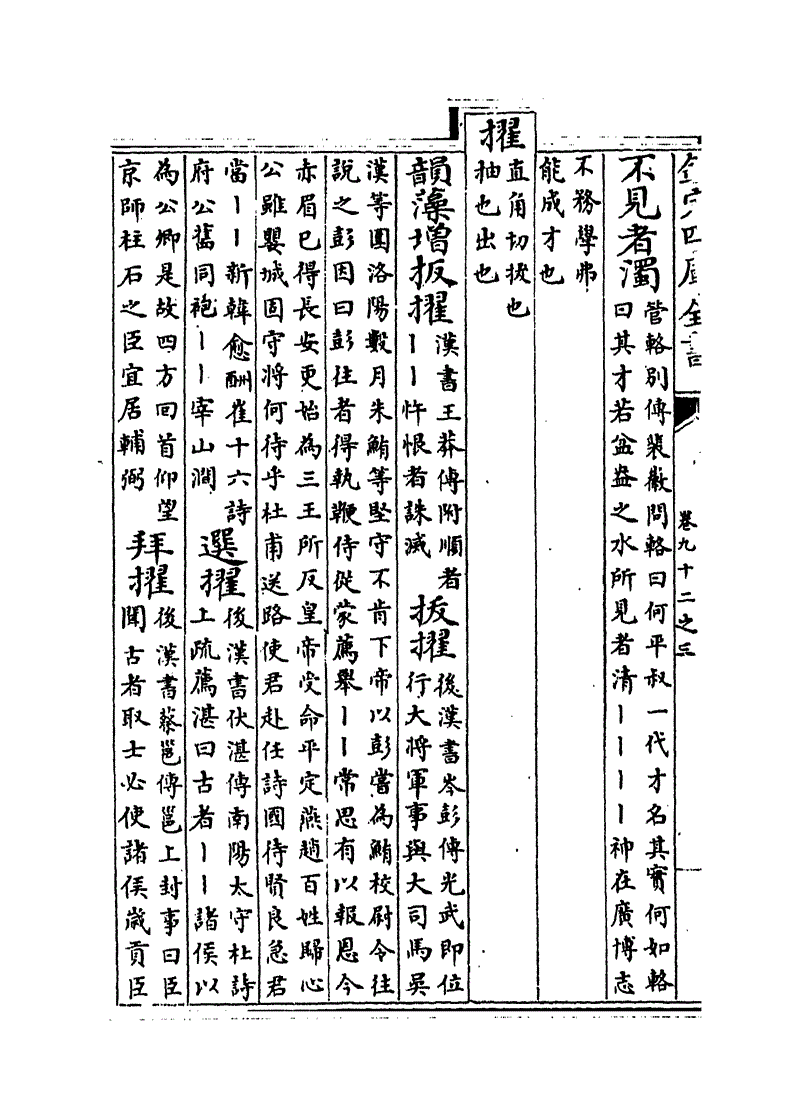 欽定四庫全書
卷九十二之三
不見者濁
管輅別傳裴徽問輅曰何平叔一代才名其實何如輅
曰其才若盆盎之水所見者清丨丨丨丨神在廣博志
不務學弗
能成才也
擢
直角切拔也
抽也出也
韻藻增拔擢
漢書王莽傳附順者
丨丨忤恨者誅滅
拔擢
後漢書岑彭傳光武即位
行大將軍事與大司馬吳
漢等圍洛陽數月朱鮪等堅守不肯下帝以彭嘗為鮪校尉令往
說之彭因曰彭往者得執鞭侍從蒙薦舉丨丨常思有以報恩今
赤眉已得長安更始為三王所反皇帝受命平定燕趙百姓歸心
公雖嬰城固守將何待乎杜甫送路使君赴任詩國待賢良急君
當丨丨新韓愈酬崔十六詩
府公舊同袍丨丨宰山澗
選擢
後漢書伏湛傳南陽太守杜詩
上疏薦湛曰古者丨丨諸侯以
為公卿是故四方回首仰望
京師柱石之臣宜居輔弼
拜擢
後漢書蔡邕傳邕上封事曰臣
聞古者取士必使諸侯歲貢臣